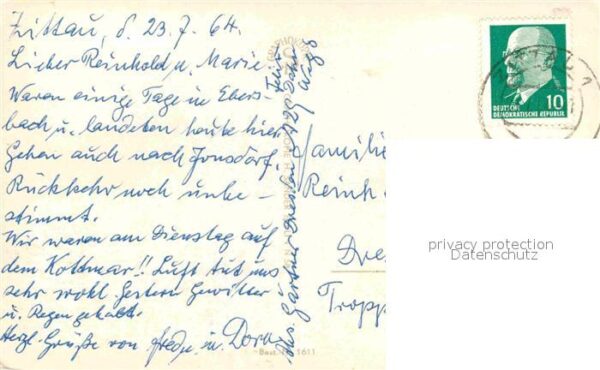 Zittau, d. 23.7.64.
Lieber Reinhold u. Marie
Waren einige Tage in Ebers-
bach u. landeten heute hier
Gehen auch nach Jonsdorf
Rückkehr noch unbe-
stimmt.
Wir waren am Dienstag auf
dem Kottmar!! Luft tut uns
sehr wohl. Gestern Gewitter
u. Regen gehabt.
Herzl. Grüße von u. Dora
Gärtner Dresden A 20
Familie
Reinh
Dres
Tropp
10
DEUTSCHE
DEMOKRATISCHE REPUBLIK
privacy protection
Datenschutz
Best. Nr. 1611